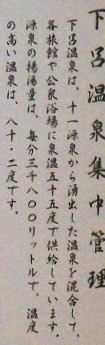 下呂温泉集中管理
下呂温泉は、十一源泉から湧出した温泉を混合して、
各旅館や公衆浴場に泉温五十五度で供給しています。
源泉の揚湯量は、毎分三千八〇〇リットルで、温度
の高い温泉は、八十・二度です。